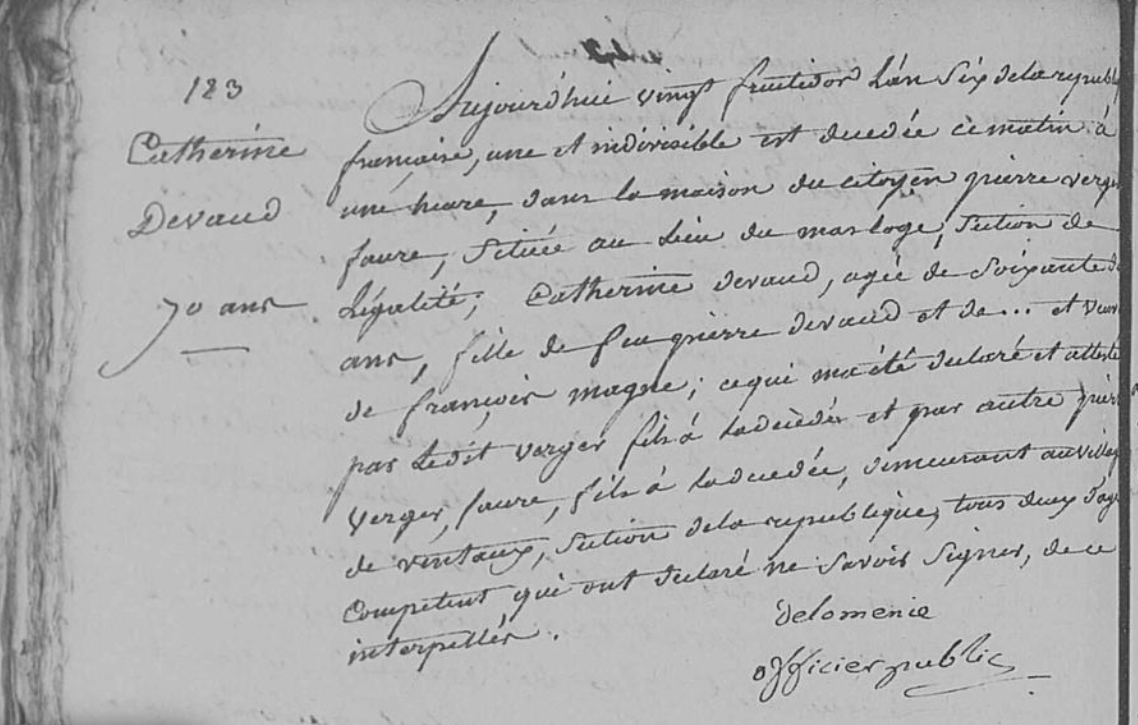 123
Catherine
Devaud
70 ans
Aujourd'hui vingt fructidor L'an Six dela republi
française, une et indivisible est decedée ce matin à
une heure, dans la maison du citoyen pierre verger
faure, Située au Lieu du masloge, Section de
Légalité; Catherine devaud, agée de Soixante di
ans, fille de feu pierre devaud et de ... et veuve
de françois magne; cequi ma été declaré et attesté
par Ledit verger fils à ladecedée et par autre pierre
verger, faure, fils à ladecedée, demeurant au villag
de ventaux, Section dela republique, tous deux d'age
Competent qui ont declaré ne Savoir Signer, de ce
interpellés.
delomenie
officier public